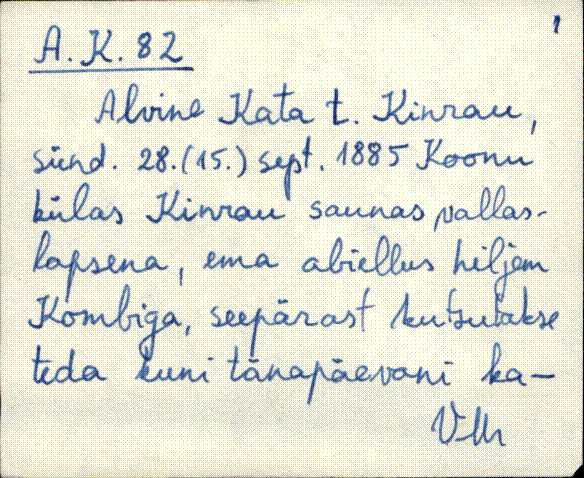 1
A. K. 82
Alvine Kata t. Kinrau,
sünd. 28. (15.) sept. 1885 Koonu
külas Kinrau saunas vallas-
lapsena, ema abiellus hiljem
Kombiga, seepärast kutsutakse
teda kuni tänapäevani ka-